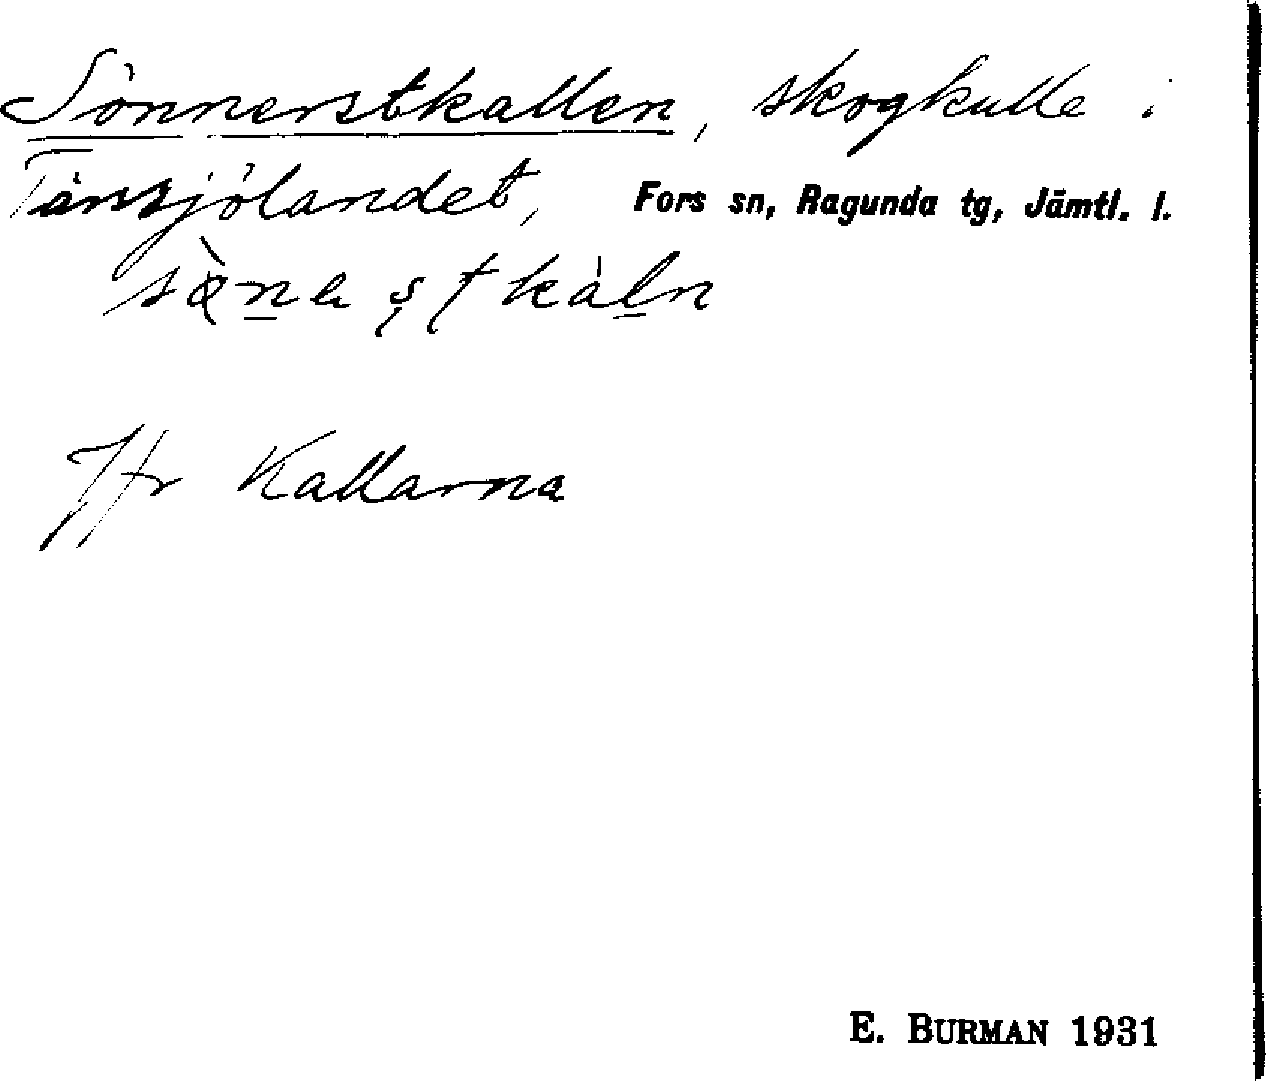 Sönnerstkallen, skogkulle i
Tänsjölandet, Fors sn, Ragunda tg, Jämtl. l.
Jfr Kallarna
E. BURMAN 1931